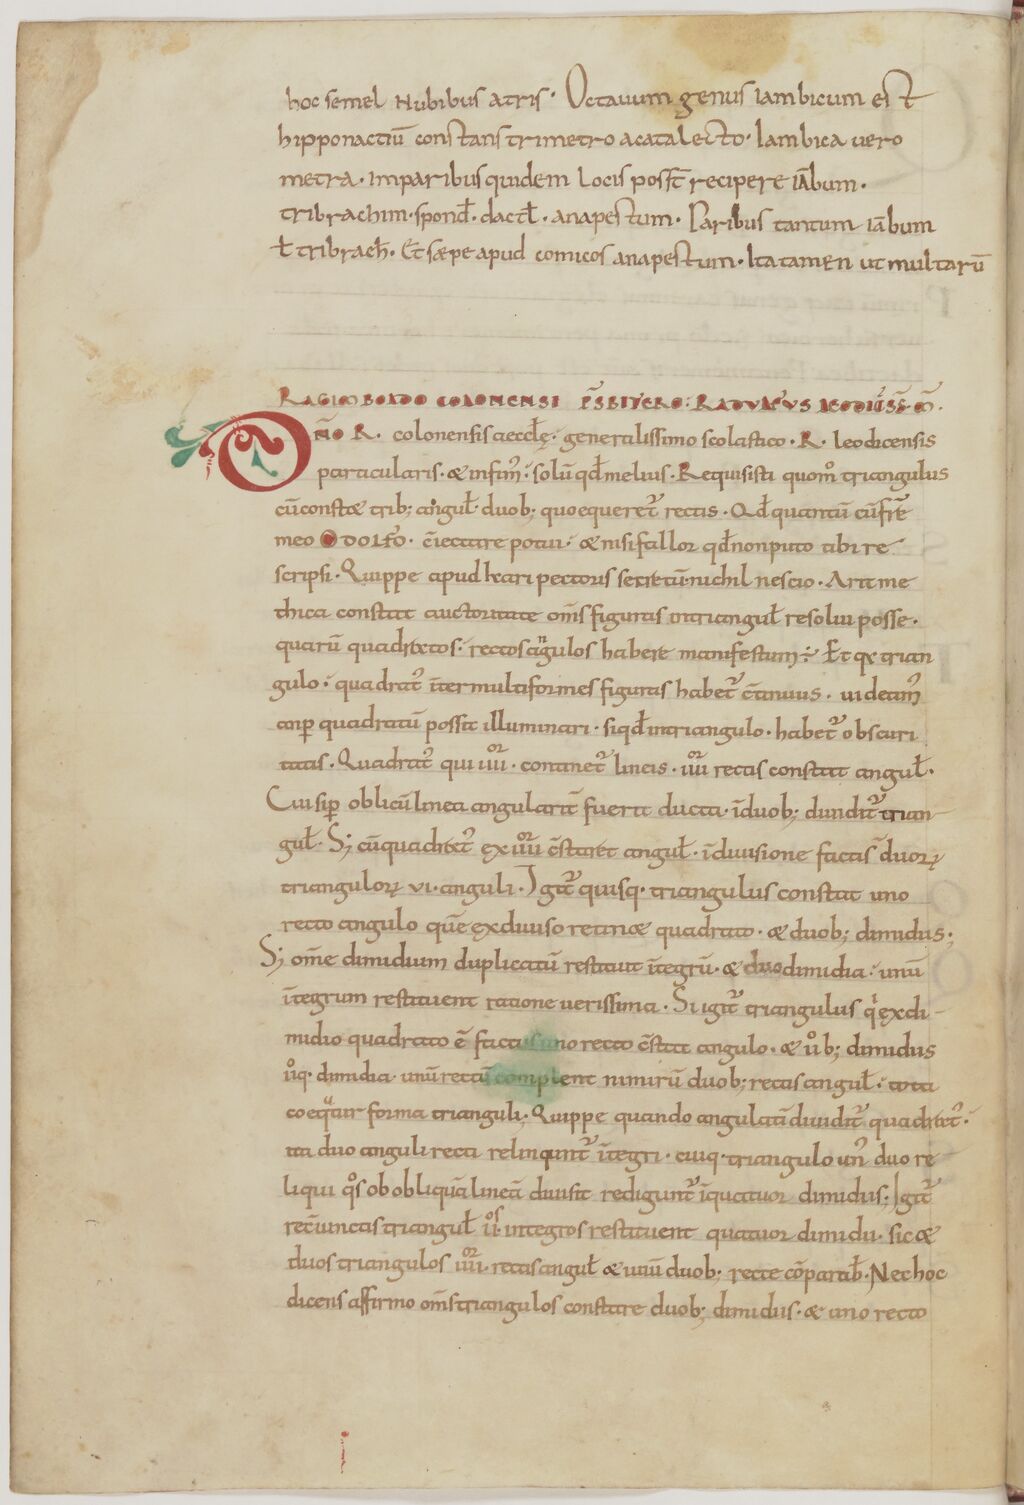 hoc semel Nubibus atris· Octauum genus iambicum est
hipponactiū constans trimetro acatalecto· Iambica uero
metra· imparibus quidem locis poss̄t recipere iābum·
tribrachim· spond̄· dactł· anapestum· Paribus tantum iābum
ł tribrach̄· Et sæpe apud comicos anapestum· Ita tamen ut multarū
RAGIMBOLDO COLONENSI P̄SBITERO: RADULFUS LEODIĒSIS
D̄NO R. colonensis aecclę· generalissimo scolastico· R· leodicensis
particularis· & infim᾿· solū qđ melius· Requisisti quom̊ triangulus
cū constæ trib; anguł· duob; quoequeret᾿ rectis· Qđ quantū cū fr̄e
meo ODOLFO· c̄iectare potui· & nisi fallor qđ non puto tibi re
scripsi· Quippe apud kari pectoris secretū· nichil nescio· Aritme
thica constat auctoritate om̄s figuras in trianguł resolui posse·
quarū quadratos· rectos angulos habere manifestum ÷ Et qa trian
gulo· quadrat᾿ īter multiformes figuras habet᾿ c̄tinuus· uideam᾿
an p quadratū possit illuminari· siqđ in triangulo· habet᾿ obscuri
tatis· Quadrat᾿ qui iiiior· continet᾿ lineis· iiiior rectis constat anguł·
Cui si p obliciū linea angularit᾿ fuerit ducta· ī duob; diuidit᾿ trian
guł· S; cū quadrat᾿ ex iiiior c̄staret anguł· ī diuisione factis duorꝝ
triangulorꝝ vi· anguli· Igit᾿ quisq· triangulus constat uno
recto angulo quē ex diuiso retinæ quadrato· & duob; dimidiis;
S; om̄e dimidium duplicatū restituit ītegrū· & duo dimidia· unū
ītegrum restituent ratione uerissima· Si igit᾿ triangulus qi ex di-
midio quadrato ē factus uno recto c̄stat angulo· & duob; dimidiis
duoq· dimidia· unū rectū complent nimirū duob; rectis anguł· tota
coeqat᾿ forma trianguli· Quippe quando angulatī diuidit᾿ quadrat᾿·
ita duo anguli recti relinqunt᾿ ītegri· cuiq· triangulo un᾿ duo re
liqui qos ob obliquā lineā diuisit rediguntᷣ ī quatuor dimidiis; Igit᾿
rec̄iunctis trianguł iios· integros restituent quatuor dimidii· sic &
duos triangulos iiiior· rectis anguł & unū duob; recte cōparab· Nec hoc
dicens affirmo om̄s triangulos constare duob; dimidiis· & uno recto